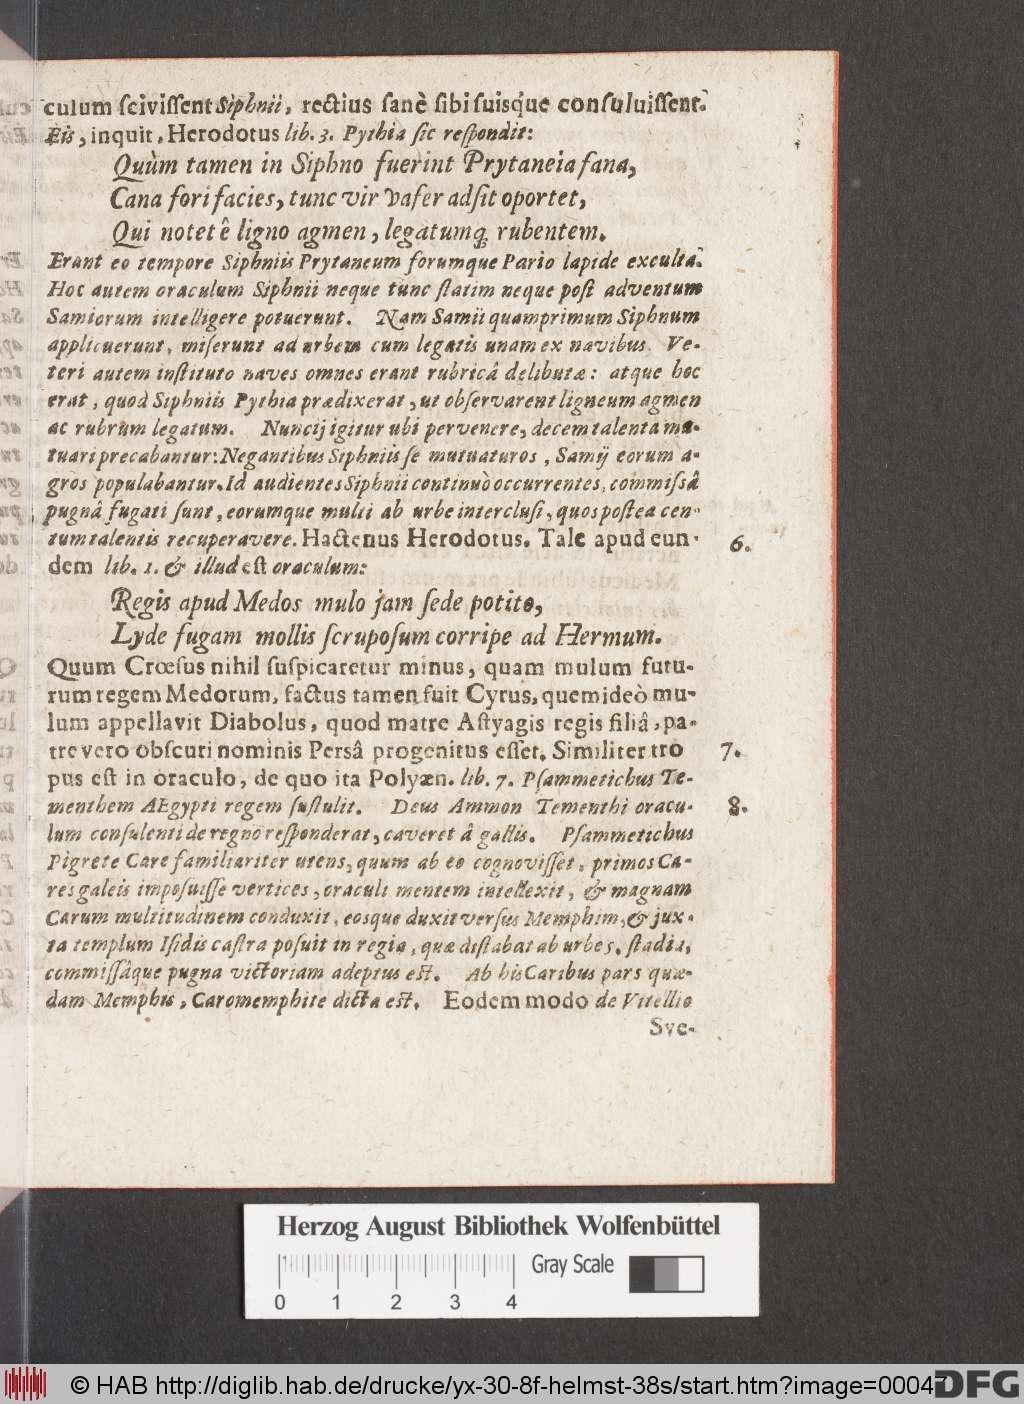 culum scivissent Siphnii, rectius sanè sibi suisq́ue consuluissent.
Eis, inquit, Herodotus lib. 3. Pythia sic respondit:
Quùm tamen in Siphno fuerint Prytaneia fana,
Cana fori facies, tunc vir vafer adsit oportet,
Qui notet ê ligno agmen, legatumq; rubentem.
Erant eo tempore Siphniis Prytaneum forumque Pario lapide exculta.
Hoc autem oraculum Siphnii neque tunc statim neque post adventum
Samiorum intelligere potuerunt. Nam Samii quamprimum Siphnum
applicuerunt, miserunt ad urbem cum legatis unam ex navibus. Ve-
teri autem instituto naves omnes erant rubricâ delibutæ: atque hoc
erat, quod Siphniis Pythia prædixerat, ut observarent ligneum agmen
ac rubrum legatum. Nuncij igitur ubi pervenere, decem talenta mu-
tuari precabantur: Negantibus Siphniis se mutuaturos, Samij eorum a-
gros populabantur. Id audientes Siphnii continuò occurrentes, commissâ
pugnâ fugati sunt, eorumque multi ab urbe interclusi, quos postea cen-
tum talentis recuperavere. Hactenus Herodotus. Tale apud eun-
6.
dem lib. 1. & illud est oraculum:
Regis apud Medos mulo jam sede potito,
Lyde fugam mollis scruposum corripe ad Hermum.
Quum Crœsus nihil suspicaretur minus, quam mulum futu-
rum regem Medorum, factus tamen fuit Cyrus, quem ideò mu-
lum appellavit Diabolus, quod matre Astyagis regis filiâ, pa-
tre vero obscuti nominis Persâ progenitus esset. Similiter tro
7.
pus est in oraculo, de quo ita Polyæn. lib. 7. Psammetichus Te-
menthem AEgypti regem sustulit. Deus Ammon Tementhi oracu-
8.
lum consulenti de regno responderat, caveret â gallis. Psammetichus
Pigrete Care familiariter utens, quum ab eo cognovisset, primos Ca-
res galeis imposuisse vertices, oraculi mentem intellexit, & magnam
Carum multitudinem conduxit, eosque duxit versus Memphim, & jux-
ta templum Isidis castra posuit in regia, quæ distabat ab urbe 5. stadia,
commissâque pugna victoriam adeptus est. Ab his Caribus pars quæ-
dam Memphis, Caromemphite dicta est. Eodem modo de Vitellio
Sve-
Herzog August Bibliothek Wolfenbüttel
Gray Scale
0 1 2 3 4
© HAB http://diglib.hab.de/drucke/yx-30-8f-helmst-38s/start.htm?image=00047
DFG